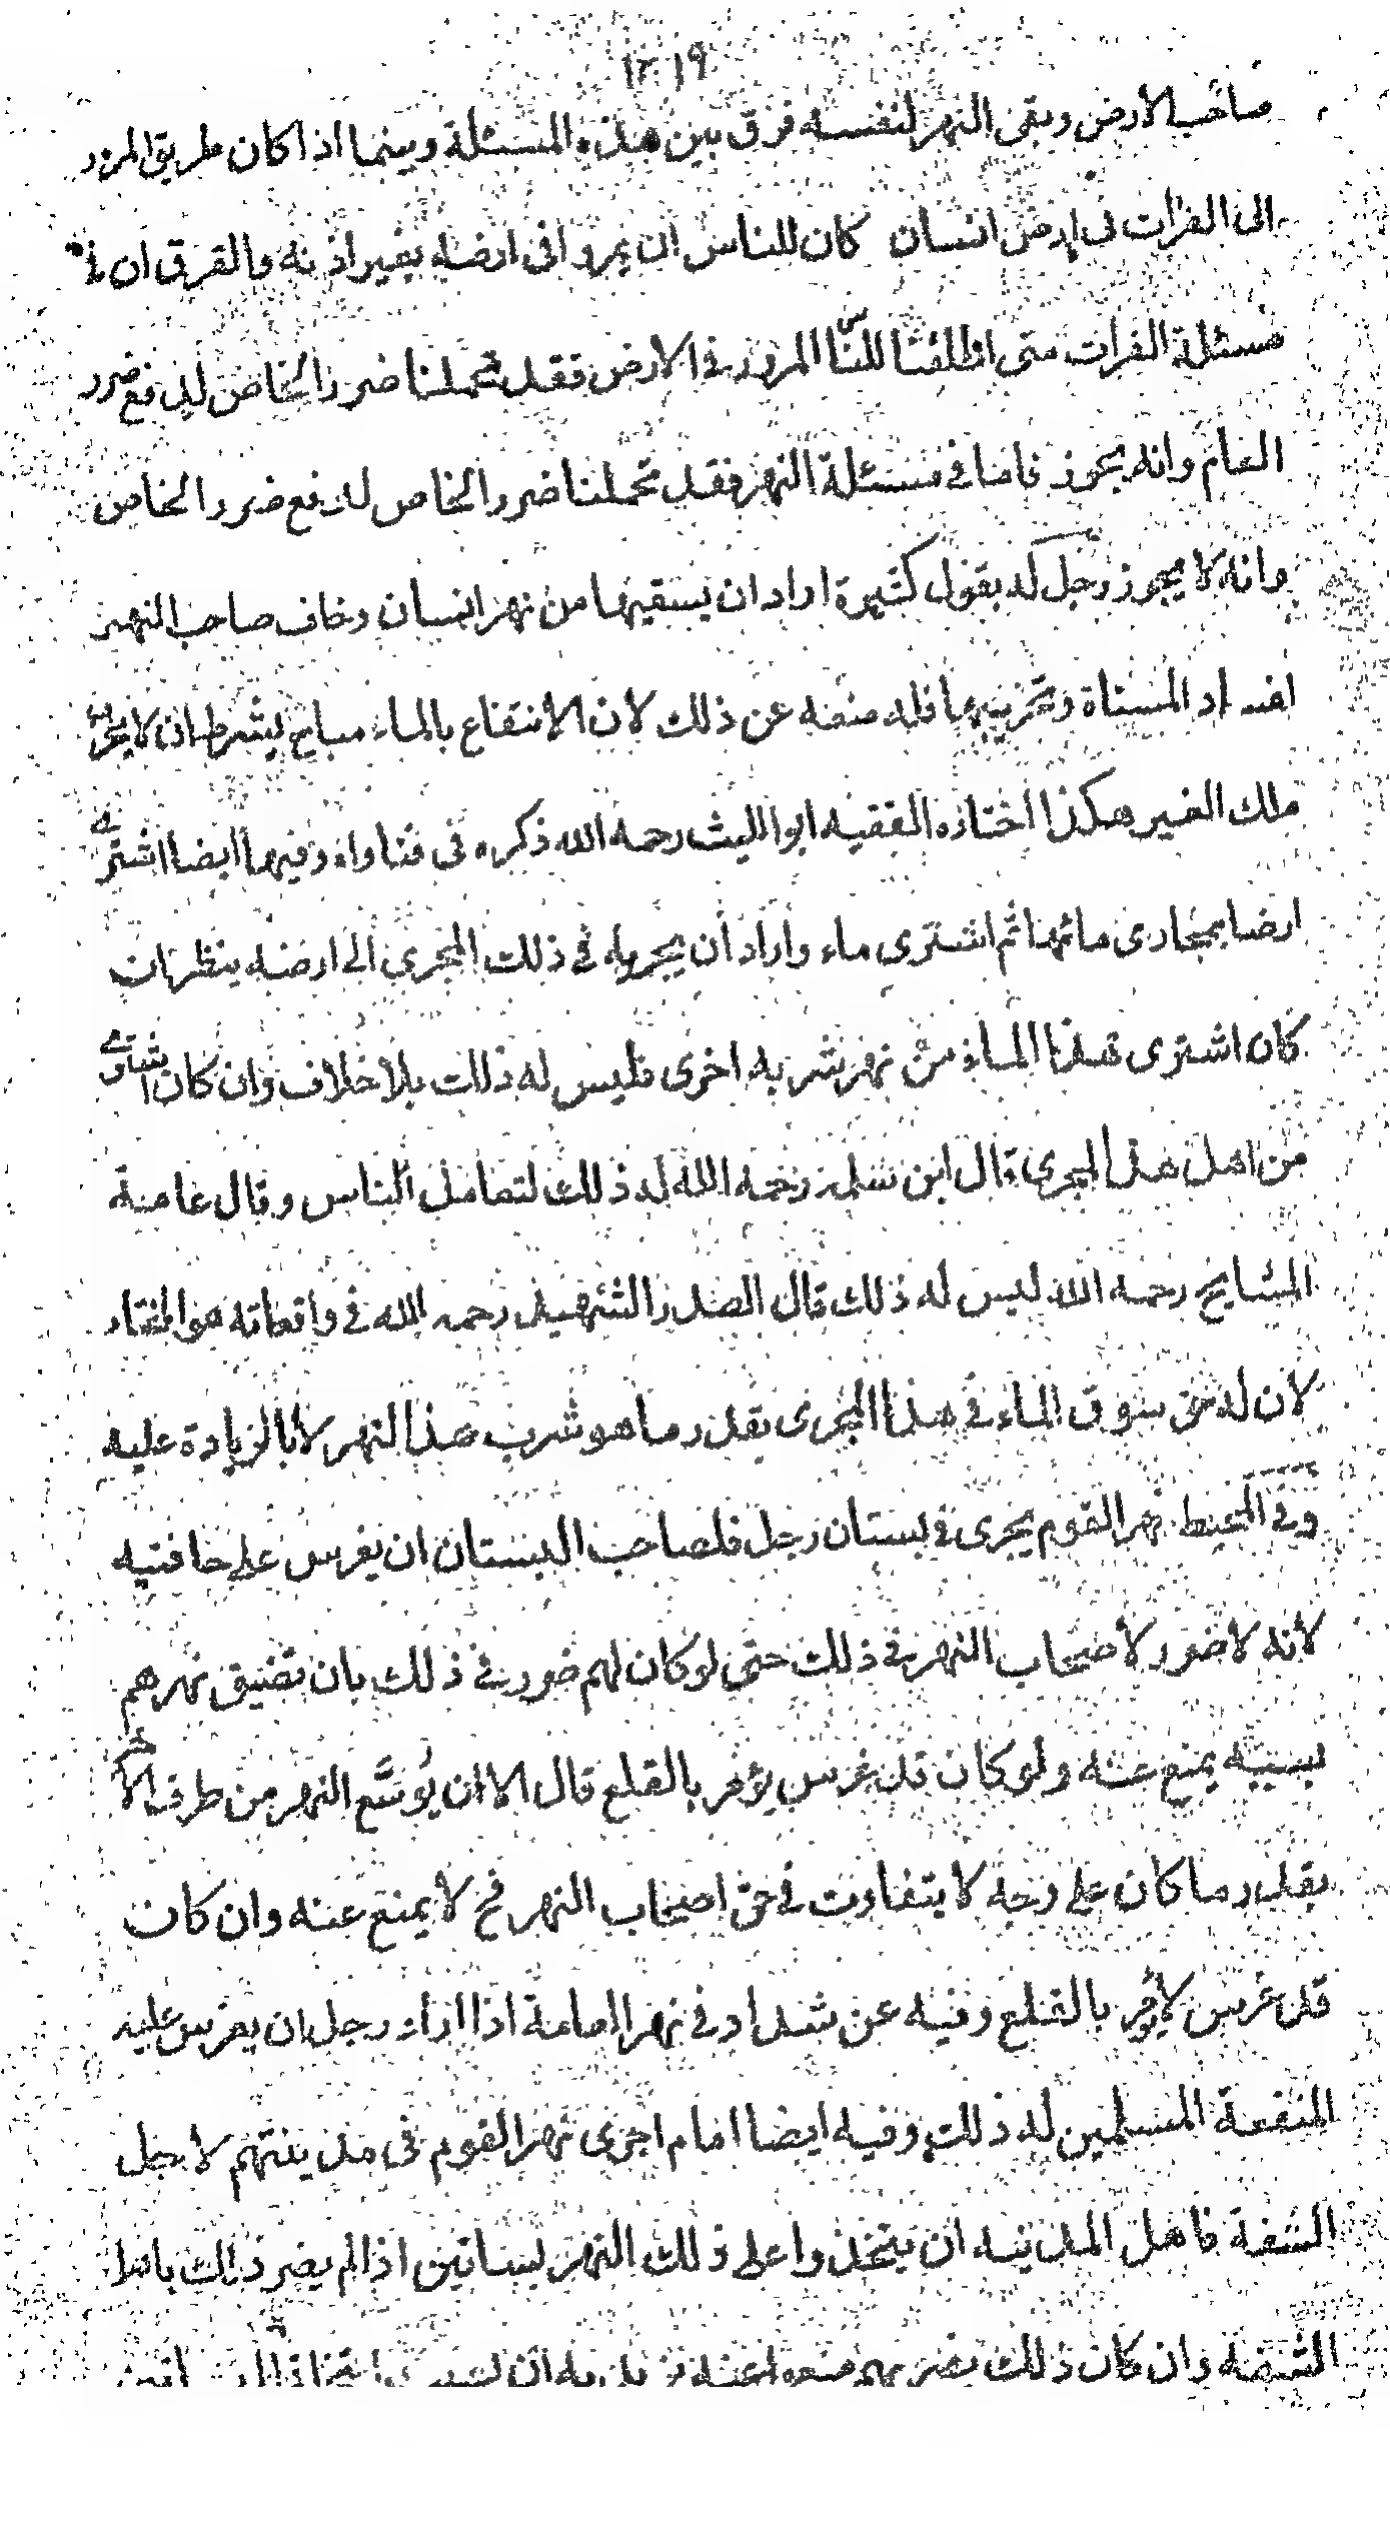 ١٢١٩
صاحب الارض وبقى النهر لنفسه فرق بين هذه المسئلة وبينما اذا كان طريق المرور
الى الفرات فى ارض انسان كان للناس ان يمروا فى ارضه بغير اذنه والفرق ان فى
مسئلة الفرات متى اطلقنا للناس المرور فى الارض فقد تحملنا ضرر الخاص لدفع ضرر
العام وانه يجوز فاما فى مسئلة النهر فقد تحملنا ضرر الخاص لدفع ضرر الخاص
وانه لا يجوز رجل له بقول كثيرة اراد ان يسقيها من نهر انسان وخاف صاحب النهر
افساد المسناة وتخريبها فله منعه عن ذلك لان الانتفاع بالماء مباح بشرط ان لا يخرب
ملك الغير هكذا اختاره الفقيه ابو الليث رحمه الله ذكره فى فتاواه وفيها ايضا اشترى
ارضا بمجارى مائها ثم اشترى ماء واراد ان يجريه فى ذلك المجرى الى ارضه ينظر ان
كان اشترى هذا الماء من نهر شربه اخرى فليس له ذلك بلا خلاف وان كان اشترى
من اهل هذا المجرى قال ابن سلمة رحمه الله له ذلك لتعامل الناس وقال عامة
المشايخ رحمه الله ليس له ذلك قال الصدر الشهيد رحمه الله فى واقعاته هو المختار
لان له حق سوق الماء فى هذا المجرى بقدر ما هو شرب هذا النهر لا بالزيادة عليه
وفى المحيط نهر القوم يجرى فى بستان رجل فلصاحب البستان ان يغرس على حافتيه
لانه لا ضرر لاصحاب النهر فى ذلك حتى لو كان لهم ضرر فى ذلك بان تضيق نهرهم
بسببه يمنع عنه ولو كان قد غرس يؤمر بالقلع قال الا ان يوسّع النهر من طرف الاخر
بقدر ما كان على وجه لا يتفاوت فى حق اصحاب النهر فح لا يمنع عنه وان كان
قد غرس لا يؤمر بالقلع وفيه عن شداد فى نهر العامة اذا اراد رجل ان يغرس عليه
المنفعة المسلمين له ذلك وفيه ايضا امام اجرى نهر القوم فى مدينتهم لاجل
الشفة فاهل المدينه ان يتخذوا على ذلك النهر بساتين اذا لم يضر ذلك باهل
الشفة وان كان ذلك يضر بهم